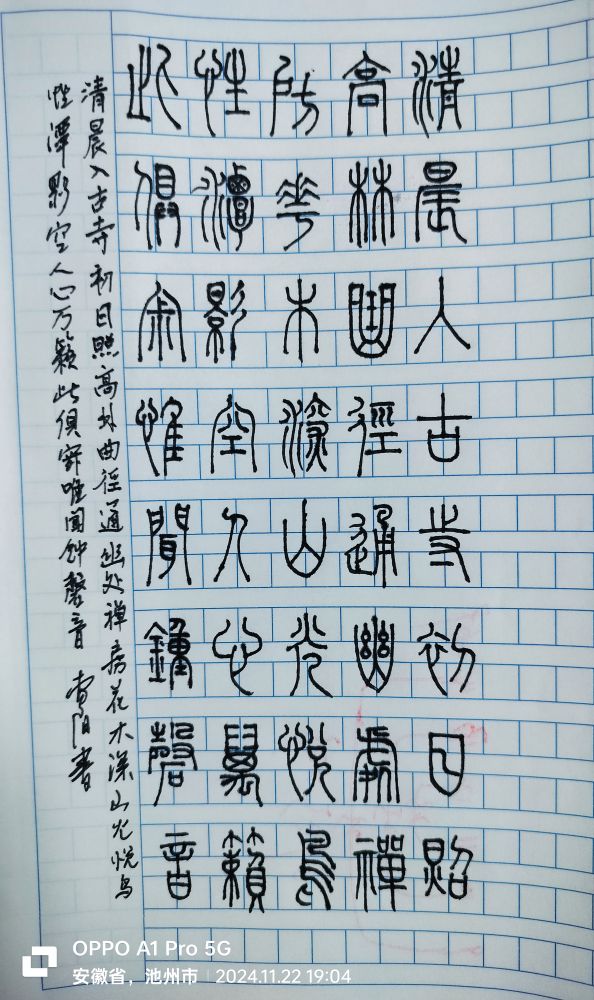 清晨入古寺初日照
高林曲徑通幽處禪
房花木深山光悅鳥
性潭影空人心萬籟
此俱寂惟聞鐘磬音
清晨入古寺初日照高林曲径通幽处禅房花木深山光悦鸟
性潭影空人心万籁此俱寂唯闻钟磬音 阳书
OPPO A1 Pro 5G
安徽省，池州市 | 2024.11.22 19:04